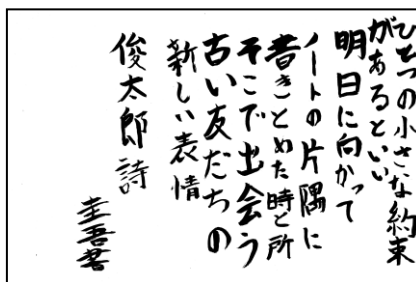 ひとつの小さな約束
があるといい
明日に向かって
ノートの片隅に
書きとめた時と所
そこで出会う
古い友だちの
新しい表情
俊太郎詩
圭吾書